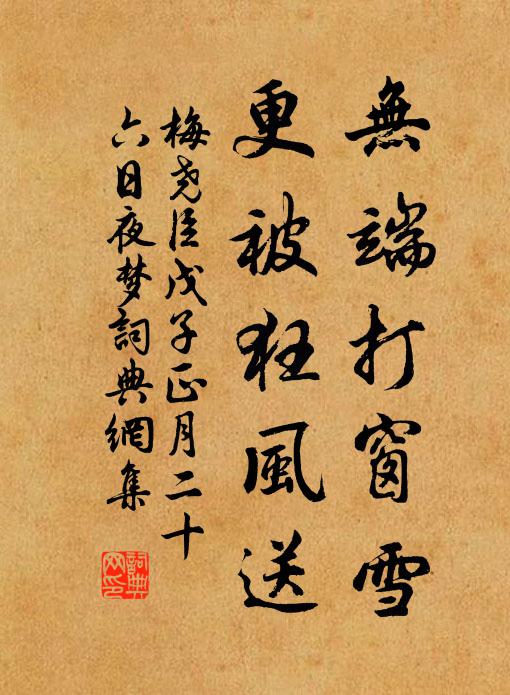 無端打窗雪
更被狂風送
梅尧臣戊子正月二十
六日夜梦詞典網集
詞典
网印